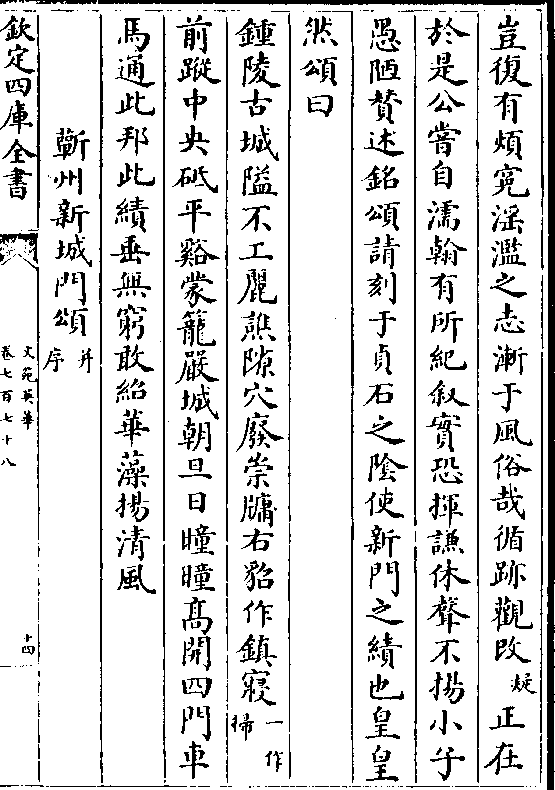 豈復有煩寃滛濫之志漸于風俗哉循跡觀改疑正在
於是公嘗自濡翰有所紀叙實恐撝謙休聲不揚小子
愚陋賛述銘頌請刻于貞石之陰使新門之績也皇皇
然頌曰
鍾陵古城隘不工麗譙隙穴廢崇牗右貂作鎮寢一作掃
前蹤中央砥平谿蒙籠嚴城朝旦日曈曈髙開四門車
馬通此邦此績垂無窮敢紹華藻揚清風
蘄州新城門頌并序
欽定四庫全書
文苑英華
卷七百七十八
十四